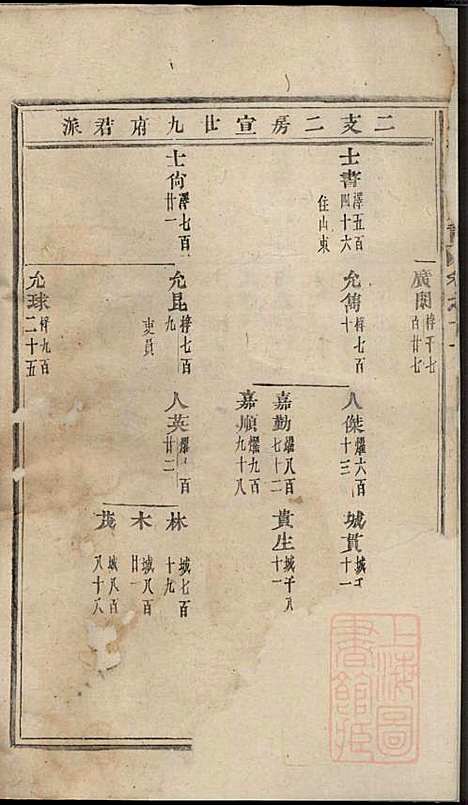 二支二房宣廿九府君派
廣閑 梓千七百廿七
士書 澤五百四十六
住山東
允儁 梓七百十
人傑 燿六百十三
城貫 城千十一
嘉勤 燿八百七十二
貴生 城千八十一
嘉順 燿九百九十八
士尙 澤七百廿一
允昆 梓七百九
吏員
人英 燿百廿二
林 城七百十九
木 城八百廿一
茂 城八百八十八
允球 梓九百二十五
上海圖書館藏